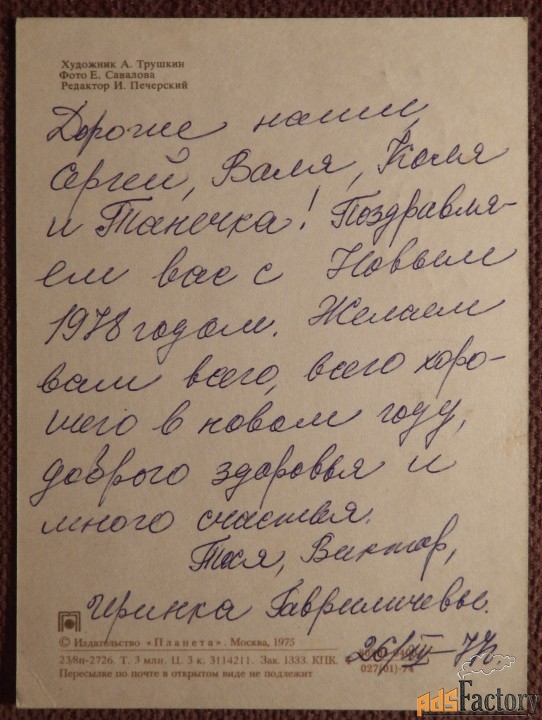 Художник А. Трушкин
Фото Е. Савалова
Редактор И. Печерский
Дорогие наши
Сергей, Валя, Коля
и Танечка! Поздравля-
ем вас с Новым
1978 годом. Желаем
вам всего, всего хоро-
шего в новом году,
доброго здоровья и
много счастья.
Тося, Виктор,
Иринка Гавриличевы.
© Издательство «Планета». Москва, 1975
26/XII-77г.
23/8п-2726. Т. 3 млн. Ц. 3 к. 3114211. Зак. 1333. КПК.
027(01)-74
Пересылке по почте в открытом виде не подлежит
adsFactory